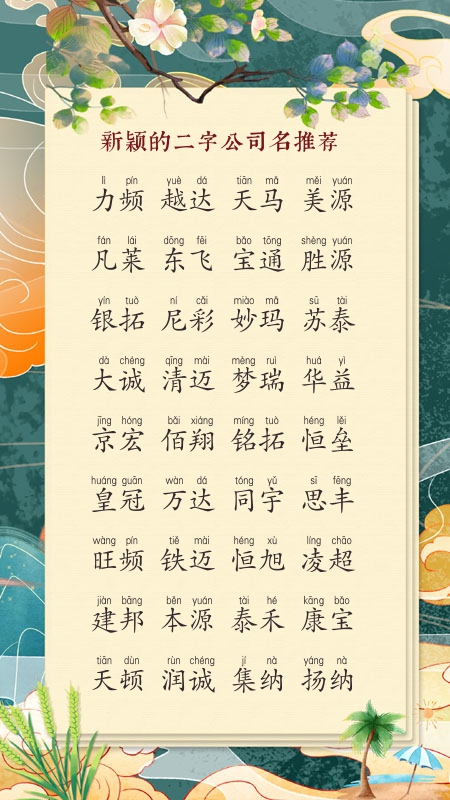 新颖的二字公司名推荐
lì pín yuè dá tiān mǎ měi yuán
力频 越达 天马 美源
fán lái dōng fēi bǎo tōng shèng yuán
凡莱 东飞 宝通 胜源
yín tuò ní cǎi miào mǎ sū tài
银拓 尼彩 妙玛 苏泰
dà chéng qīng mài mèng ruì huá yì
大诚 清迈 梦瑞 华益
jīng hóng bǎi xiáng míng tuò héng lěi
京宏 佰翔 铭拓 恒垒
huáng guān wàn dá tóng yǔ sī fēng
皇冠 万达 同宇 思丰
wàng pín tiě mài héng xù líng chāo
旺频 铁迈 恒旭 凌超
jiàn bāng běn yuán tài hé kāng bǎo
建邦 本源 泰禾 康宝
tiān dùn rùn chéng jí nà yáng nà
天顿 润诚 集纳 扬纳